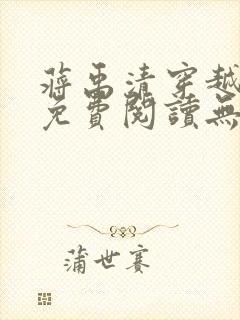 蔣禹清穿越
免費閱讀無
蒲世賽